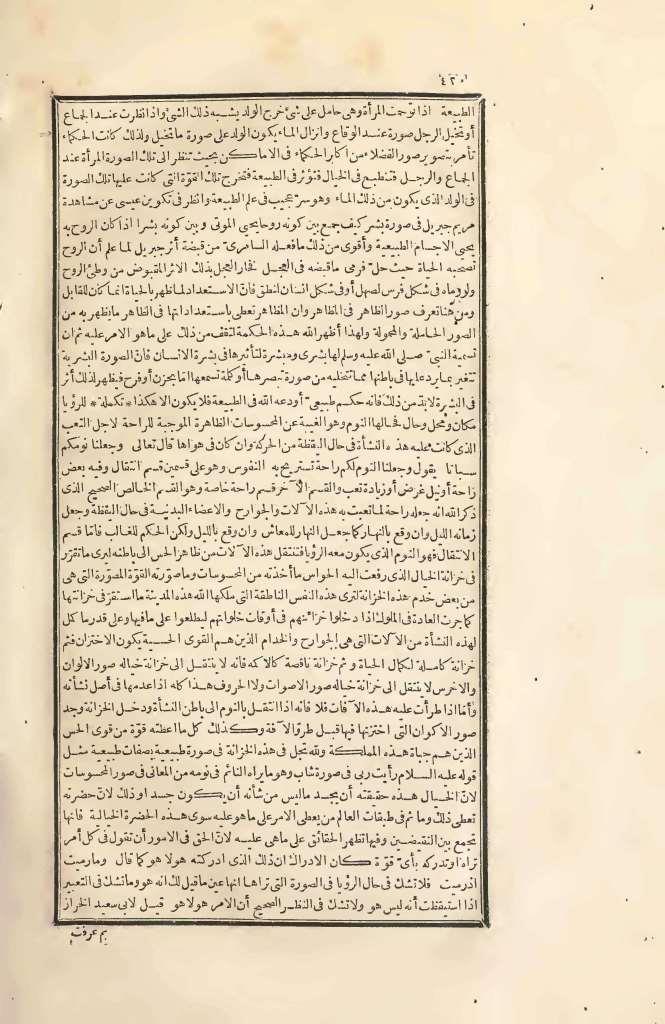 ٤٢٠
الطبيعة اذا توحمت المرأة وهى حامل على شئ خرج الولد يشبه ذلك الشئ واذا نظرت عند الجماع
أو تخيل الرجل صورة عند الوقاع وانزال الماء يكون الولد على صورة ما تخيل ولذلك كانت الحكماء
تأمر بتصوير صور الفضلاء من أكابر الحكماء فى الاماكن بحيث تنظر الى تلك الصورة المرأة عند
الجماع والرجل فتنطبع فى الخيال فتؤثر فى الطبيعة فتخرج تلك القوّة التى كانت عليها تلك الصورة
فى الولد الذى يكون من ذلك الماء وهو سرّ عجيب فى علم الطبيعة وانظر فى تكوين عيسى عن مشاهدة
مريم جبريل فى صورة بشر كيف جمع بين كونه روحا يحيى الموتى وبين كونه بشرا اذا كان الروح به
يحيى الاجسام الطبيعية وأقوى من ذلك ما فعله السامرىّ من قبضة أثر جبريل لما علم أن الروح
تصحبه الحياة حيث حلّ فرمى ما قبضه فى العجل فخار العجل بذلك الاثر المقبوض من وطئ الروح
ولو رماه فى شكل فرس لصهل أو فى شكل انسان لنطق فانّ الاستعداد لما ظهر بالحياة انما كان للقابل
ومن هنا تعرف صور الظاهر فى المظاهر وان المظاهر تعطى باستعداداتها فى الظاهر ما يظهر به من
الصور الحاملة والمحمولة ولهذا أظهر الله هذه الحكمة لتقف من ذلك على ما هو الامر عليه ثم ان
تسمية النبىّ صلى الله عليه وسلم لها بشرى ومبشرة لتأثيرها فى بشرة الانسان فانّ الصورة البشرية
تتغير بما يرد عليها فى باطنها مما تتخيله من صورة تبصرها أو كلمة تسمعها اما بحزن أو فرح فيظهر لذلك أثر
فى البشرة لابدّ من ذلك فانه حكم طبيعىّ أودعه الله فى الطبيعة فلا يكون الا هكذا * تكملة * للرؤيا
مكان ومحل وحال فحالها النوم وهو الغيبة عن المحسوسات الظاهرة الموجبة للراحة لاجل التعب
الذى كانت عليه هذه النشأة فى حال اليقظة من الحركة وان كان فى هواها قال تعالى وجعلنا نومكم
سباتا يقول وجعلنا النوم لكم راحة تستريح به النفوس وهو على قسمين قسم انتقال وفيه بعض
راحة أو نيل غرض أو زيادة تعب والقسم الآخر قسم راحة خاصة وهو القسم الخالص الصحيح الذى
ذكر الله انه جعله راحة لما تعبت به هذه الآلات والجوارح والاعضاء البدنية فى حال اليقظة وجعل
زمانه الليل وان وقع بالنهار كما جعل النهار للمعاش وان وقع بالليل ولكن الحكم للغالب فامّا قسم
الانتقال فهو النوم الذى يكون معه الرؤيا فتنتقل هذه الآلات من ظاهر الحس الى باطنه ليرى ما تقرّر
فى خزانة الخيال الذى رفعت اليه الحواس ما أخذته من المحسوسات وما صوّرته القوّة المصوّرة التى هى
من بعض خدم هذه الخزانة لترى هذه النفس الناطقة التى ملكها الله هذه المدينة ما استقرّ فى خزانتها
كما جرت العادة فى الملوك اذا دخلوا خزائنهم فى أوقات خلواتهم ليطلعوا على ما فيها وعلى قدر ما كمل
لهذه النشأة من الآلات التى هى الجوارح والخدام الذين هم القوى الحسية يكون الاختزان فثم
خزانة كاملة لكمال الحياة وثم خزانة ناقصة كالاكمه فانه لا ينتقل الى خزانة خياله صور الالوان
والاخرس لا ينتقل الى خزانة خياله صور الاصوات ولا الحروف هذا كله اذا عدمها فى أصل نشأته
وأمّا اذا طرأت عليه هذه الآفات فلا فانه اذا انتقل بالنوم الى باطن النشأة ودخل الخزانة وجد
صور الاكوان التى اختزنها فيها قبل طروّ الآفة وكذلك كل ما اعطته قوّة من قوى الحس
الذين هم جباة هذه المملكة ولله تجل فى هذه الخزانة فى صورة طبيعية بصفات طبيعية مثل
قوله عليه السلام رأيت ربى فى صورة شاب وهو ما يراه النائم فى نومه من المعانى فى صور المحسوسات
لانّ الخيال هذه حقيقته أن يجسد ما ليس من شأنه أن يكون جسدا وذلك لانّ حضرته
تعطى ذلك وما ثم فى طبقات العالم من يعطى الامر على ما هو عليه سوى هذه الحضرة الخيالية فانها
تجمع بين النقيضين وفيها تظهر الحقائق على ما هى عليه لانّ الحق فى الامور أن تقول فى كل أمر
تراه أو تدركه بأىّ قوّة كان الادراك ان ذلك الذى ادركته هو لا هو كما قال وما رميت
اذ رميت فلا تشك فى حال الرؤيا فى الصورة التى تراها انها عين ما قيل لك انه هو وما تشك فى التعبير
اذا استيقظت أنه ليس هو ولا تشك فى النظر الصحيح أن الامر هو لا هو قيل لابى سعيد الخراز
بم عرفت